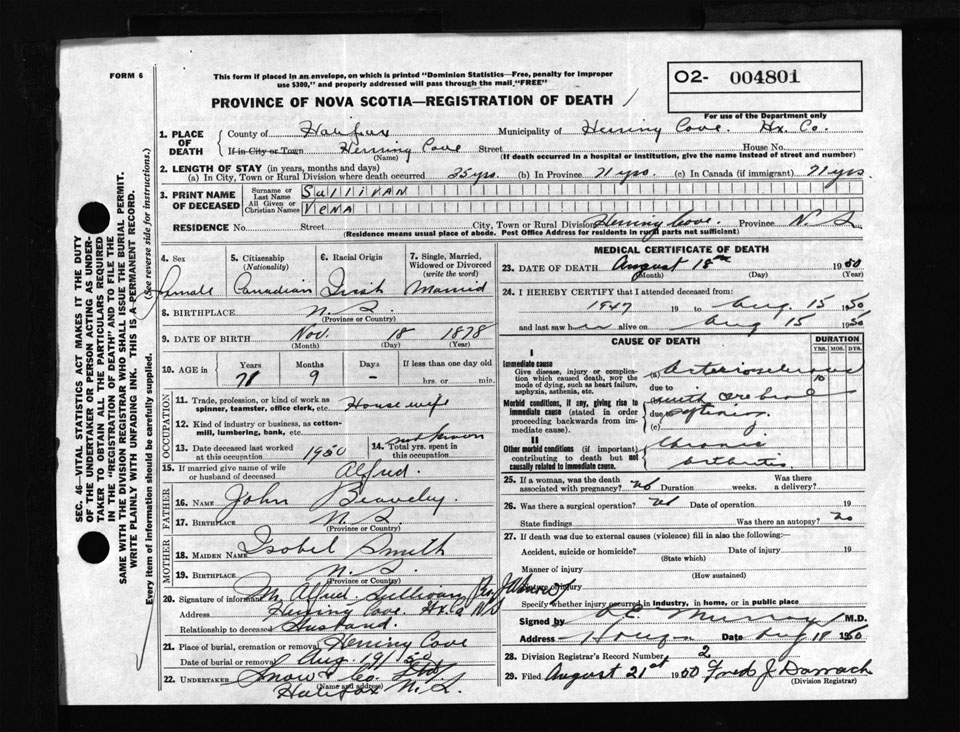 FORM 6
This form if placed in an envelope, on which is printed "Dominion Statistics—Free, penalty for improper
use $300," and properly addressed will pass through the mail "FREE"
O2- 004801
For use of the Department only
PROVINCE OF NOVA SCOTIA—REGISTRATION OF DEATH
1. PLACE OF DEATH County of Halifax Municipality of Herring Cove. Hx. Co.
If in City or Town Herring Cove Street House No.
(Name) (If death occurred in a hospital or institution, give the name instead of street and number)
2. LENGTH OF STAY (in years, months and days)
(a) In City, Town or Rural Division where death occurred 35 yrs. (b) In Province 71 yrs. (c) In Canada (if immigrant) 71 yrs
3. PRINT NAME OF DECEASED Surname or Last Name SullIVAN
All Given or Christian Names VeNA
RESIDENCE No. Street City, Town or Rural Division Herring Cove. Province N.S.
(Residence means usual place of abode. Post Office Address for residents in rural parts not sufficient)
4. Sex Female
5. Citizenship (Nationality) Canadian
6. Racial Origin Irish
7. Single, Married, Widowed or Divorced (write the word) Married
8. BIRTHPLACE N.S.
(Province or Country)
9. DATE OF BIRTH Nov. 18 1878
(Month) (Day) (Year)
10. AGE in Years 71 Months 9 Days – If less than one day old
hrs. or min.
OCCUPATION
11. Trade, profession, or kind of work as
spinner, teamster, office clerk, etc. Housewife
12. Kind of industry or business, as cotton-
mill, lumbering, bank, etc.
13. Date deceased last worked
at this occupation 1950
14. Total yrs. spent in
this occupation. not known
15. If married give name of wife
or husband of deceased Alfred.
FATHER
16. NAME John
17. BIRTHPLACE N.S.
(Province or Country)
MOTHER
18. MAIDEN NAME Isobel Smith
19. BIRTHPLACE N.S.
(Province or Country)
20. Signature of informant Mr. Alfred Sullivan
Address Herring Cove. Hx. Co NS
Relationship to deceased Husband.
21. Place of burial, cremation or removal Herring Cove
Date of burial or removal Aug. 19/50
22. UNDERTAKER Snow & Co. Ltd.
(Name and address)
Halifax N.S.
MEDICAL CERTIFICATE OF DEATH
23. DATE OF DEATH August 18th 1950
(Month) (Day) (Year)
24. I HEREBY CERTIFY that I attended deceased from:
1947 19 to Aug. 15 1950
and last saw her alive on Aug 15 1950
CAUSE OF DEATH DURATION
YRS. MOS. DYS.
I
Immediate cause
Give disease, injury or compli-
cation which caused death, NOT the
mode of dying, such as heart failure,
asphyxia, asthenia, etc.
(a) Arteriosclerosis 10
due to
Morbid conditions, if any, giving rise to
immediate cause (stated in order
proceeding backwards from im-
mediate cause).
with cerebral
due to softening
(c)
II
Other morbid conditions (if important)
contributing to death but not
causally related to immediate cause.
Chronic
Arthritis.
25. If a woman, was the death
associated with pregnancy? no Duration weeks. Was there
a delivery?
26. Was there a surgical operation? no Date of operation 19
State findings Was there an autopsy? no
27. If death was due to external causes (violence) fill in also the following:—
Accident, suicide or homicide? Date of injury 19
(State which)
Manner of injury
(How sustained)
Nature of injury
Specify whether injury occurred in industry, in home, or in public place
Signed by Murray M.D.
Address Date Aug 18 1950
28. Division Registrar's Record Number 2
29. Filed August 21st 1950 Fred J Darrach
(Division Registrar)
SEC. 46—VITAL STATISTICS ACT MAKES IT THE DUTY
OF THE UNDERTAKER OR PERSON ACTING AS UNDER-
TAKER TO OBTAIN ALL THE PARTICULARS REQUIRED
IN THE "REGISTRATION OF DEATH" AND TO FILE THE
SAME WITH THE DIVISION REGISTRAR WHO SHALL ISSUE THE BURIAL PERMIT.
WRITE PLAINLY WITH UNFADING INK. THIS IS A PERMANENT RECORD.
Every item of information should be carefully supplied. (See reverse side for instructions.)